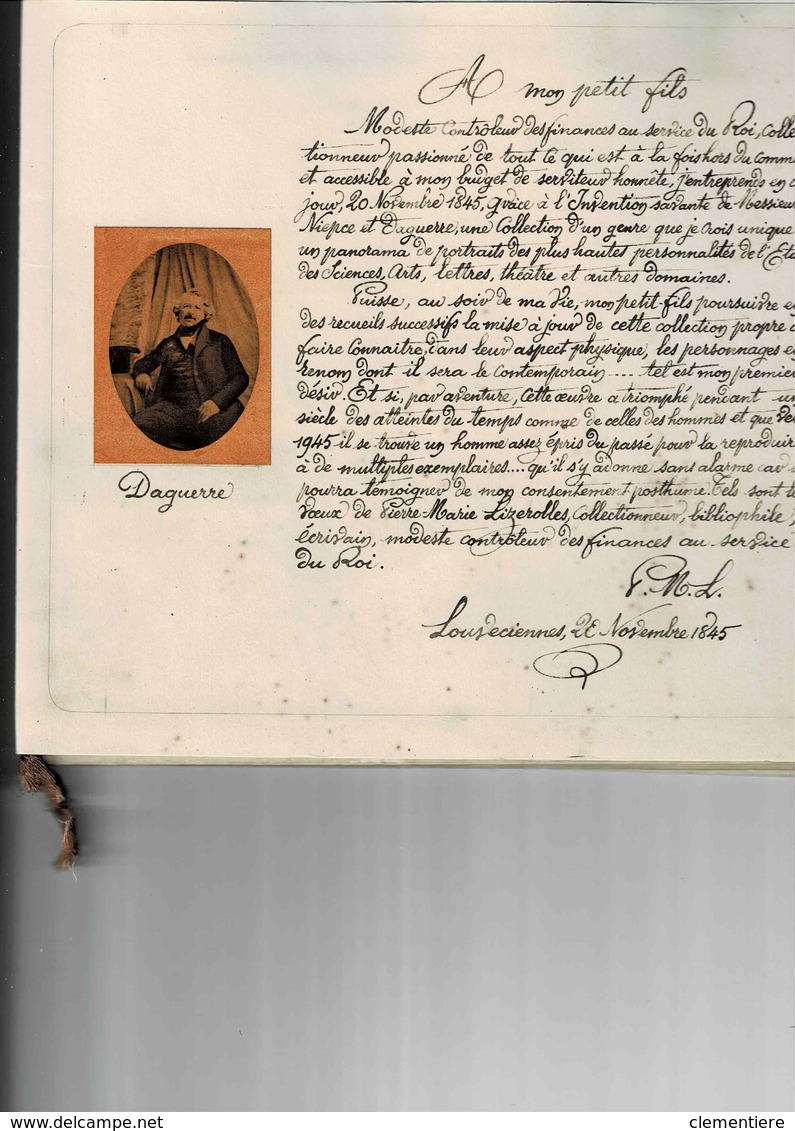 A mon petit fils
Modeste Contrôleur des finances au service du Roi, Colle
tionneur passionné de tout ce qui est à la fois hors du comm
et accessible à mon budget de serviteur honnête, j'entreprends en c
jour, 20 Novembre 1845, grâce à l'Invention savante de Messieur
Niepce et Daguerre, une Collection d'un genre que je crois unique
un panorama de portraits des plus hautes personnalités de l'Eta
des Sciences, Arts, lettres, théâtre et autres domaines.
Puisse, au soir de ma Vie, mon petit-fils poursuivre e
des recueils successifs la mise à jour de cette collection propre à
faire Connaitre, dans leur aspect physique, les personnages e
renom dont il sera le Contemporain .... tel est mon premier
désir. Et si, par aventure, Cette œuvre a triomphé pendant un
siècle des atteintes du temps comme de celles des hommes et que ve
1945 il se trouve un homme assez épris du passé pour la reproduir
à de multiples exemplaires.... qu'il s'y adonne sans alarme car i
pourra témoigner de mon consentement posthume. Tels sont le
vœux de Pierre-Marie Lizerolles, Collectionneur, bibliophile,
écrivain, modeste contrôleur des finances au service
du Roi.
P.M.L.
Louveciennes, 20 Novembre 1845
Daguerre
clementiere